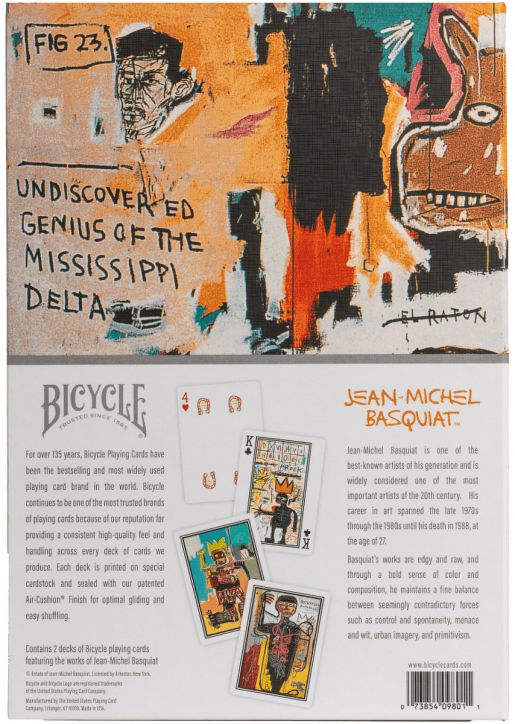 FIG 23.
UNDISCOVERED
GENIUS OF THE
MISSISSIPPI
DELTA
EL RATON
BICYCLE
TRUSTED SINCE 1885
JEAN-MICHEL
BASQUIAT™
4
K
For over 135 years, Bicycle Playing Cards have
been the bestselling and most widely used
playing card brand in the world. Bicycle
continues to be one of the most trusted brands
of playing cards because of our reputation for
providing a consistent high-quality feel and
handling across every deck of cards we
produce. Each deck is printed on special
cardstock and sealed with our patented
Air-Cushion® Finish for optimal gliding and
easy shuffling.
Contains 2 decks of Bicycle playing cards
featuring the works of Jean-Michel Basquiat
© Estate of Jean-Michel Basquiat. Licensed by Artestar, New York.
Bicycle and Bicycle Logo are registered trademarks
of the United States Playing Card Company.
Manufactured by The United States Playing Card
Company, Erlanger, KY 41018. Made in USA.
Jean-Michel Basquiat is one of the
best-known artists of his generation and is
widely considered one of the most
important artists of the 20th century. His
career in art spanned the late 1970s
through the 1980s until his death in 1988, at
the age of 27.
Basquiat's works are edgy and raw, and
through a bold sense of color and
composition, he maintains a fine balance
between seemingly contradictory forces
such as control and spontaneity, menace
and wit, urban imagery, and primitivism.
www.bicyclecards.com
0 73854 09801 1